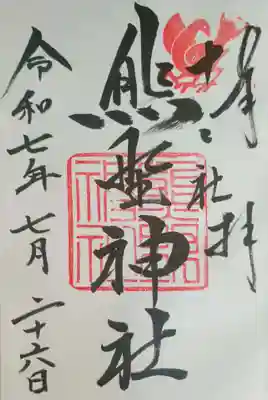 奉拝
十二社
熊野神社
令和七年七月二十六日